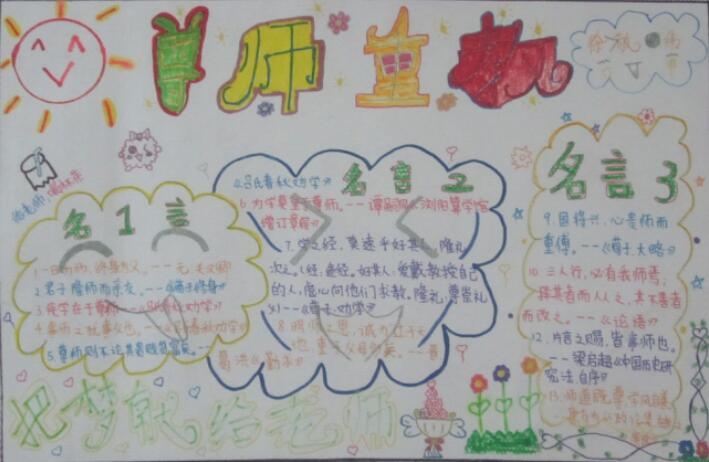 尊师重教
名言1
1.一日为师,终身为父。--元·关汉卿
2.君子隆师而亲友。--《荀子·修身》
3.疾学在于尊师。--《吕氏春秋·劝学》
4.事师之犹事父也。--《吕氏春秋·劝学》
5.尊师则不论其贵贱贫富矣。--
名言2
《吕氏春秋·劝学》
6.为学莫重于尊师。--谭嗣同《浏阳算学馆
增订章程》
7.学之经,莫速乎好其人,隆礼
次之。(经,途经。好其人,爱戴教授自己
的人,愿心向他们求教。隆礼,尊崇礼
义)--《荀子·劝学》
8.明师之恩,诚为过于天
地,重于父母多矣。--晋
葛洪《勤求》
名言3
9.国将兴,心贵师而
重傅。--《荀子·大略》
10.三人行,必有我师焉;
择其善者而从之,其不善者
而改之。--《论语》
12.片言之赐,皆事师也。
--梁启超《中国历史研
究法·自序》
13.师道既尊,学风自善
把梦献给老师